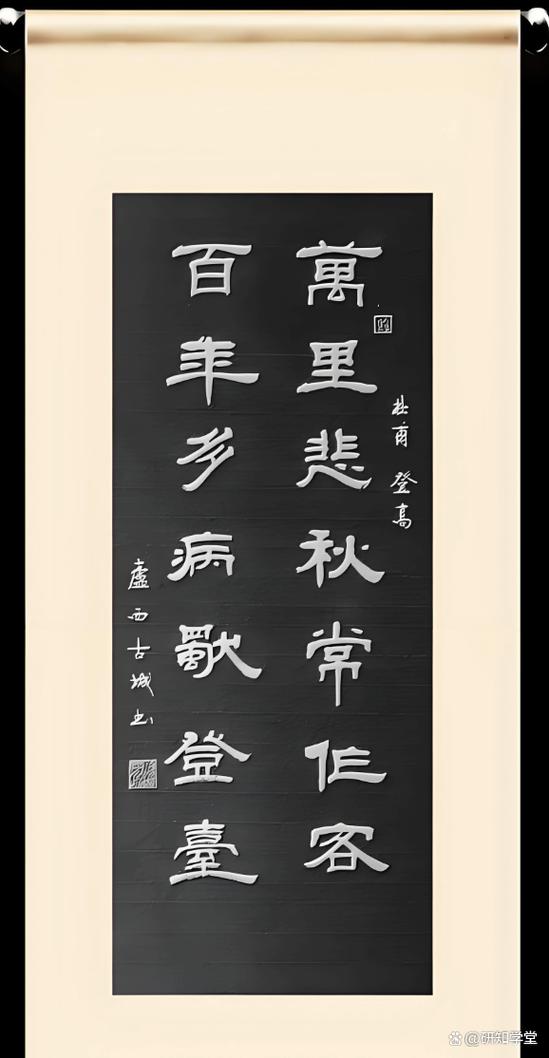 萬里悲秋常作客
百年多病獨登臺
杜甫 登高
盧西古城书
@研知学堂